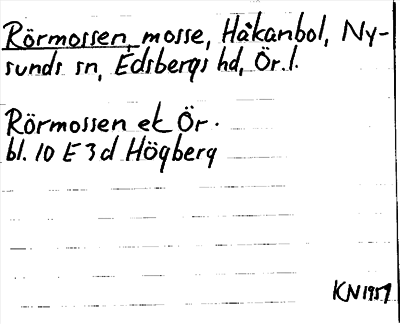 Rörmossen, mosse, Håkanbol, Ny-
sunds sn, Edsbergs hd, Ör. l.
Rörmossen ek Ör.
bl. 10 E 3d Högberg
KN 1957